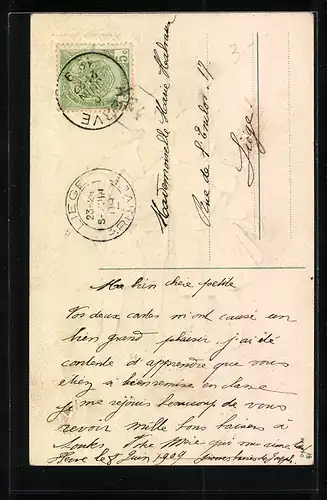 3.-
5c
HERVE
LIEGE
Mademoiselle Marie
Rue de l'Enclos 17
Liège
Ma bien chère petite
Vos deux cartes m'ont causé un
bien grand plaisir j'ai été
contente d'apprendre que vous
étiez si bien remise en classe
Je me réjouis beaucoup de vous
revoir mille bons baisers à
toutes Votre Mère qui vous aime
Herve le 8 Juin 1909